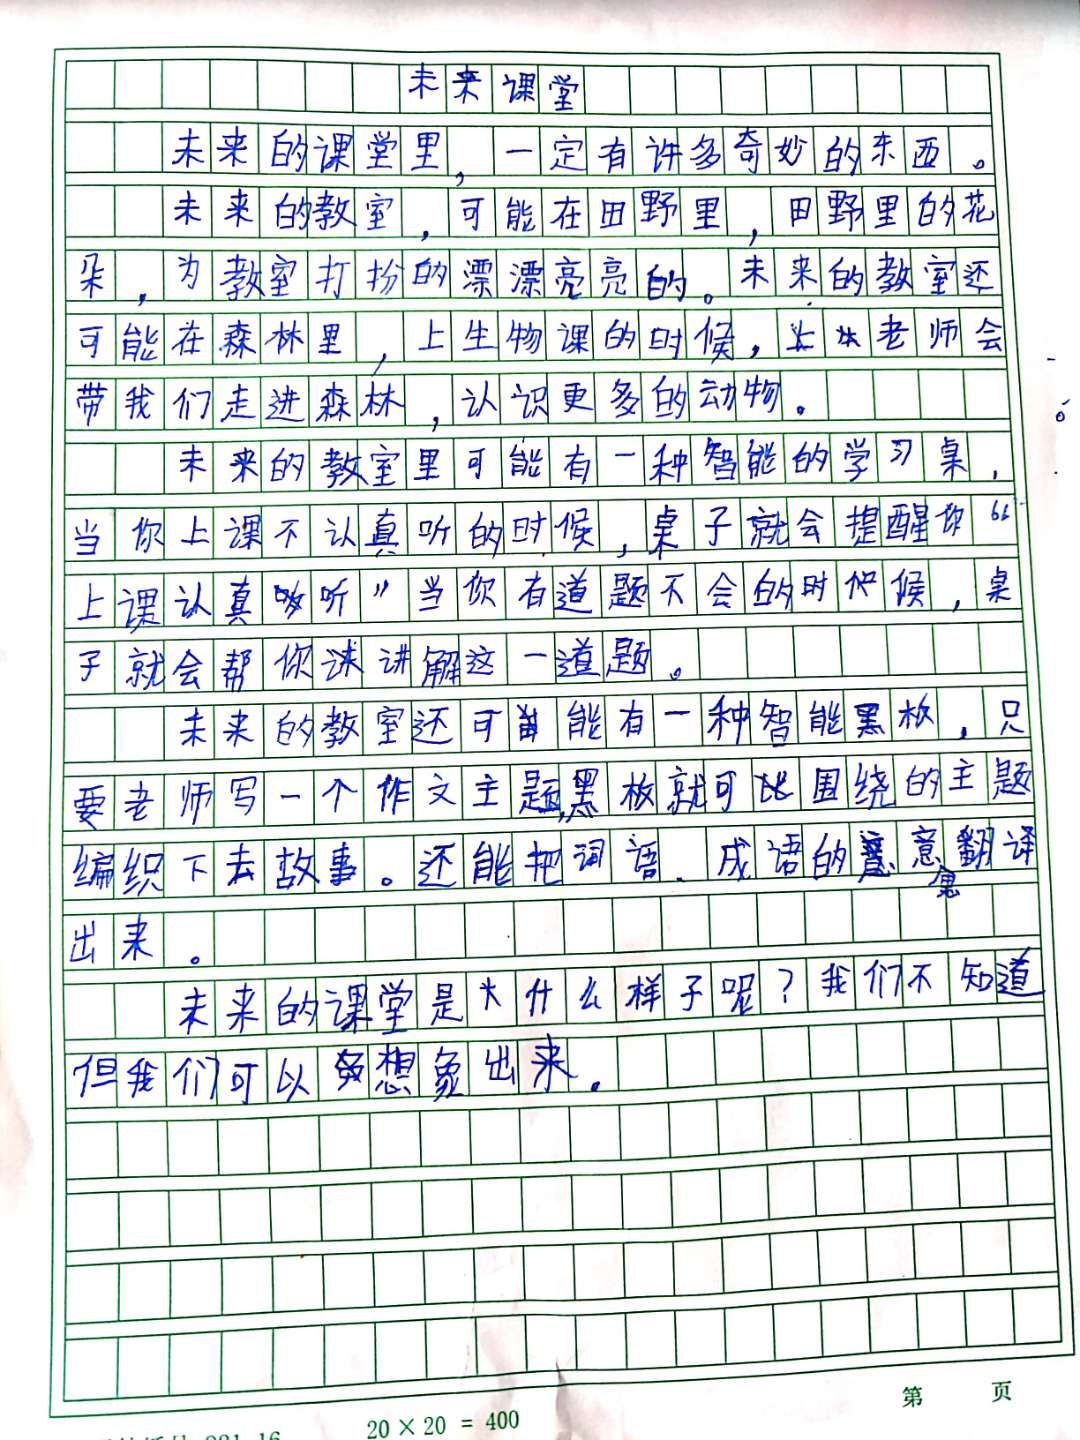 未来课堂
未来的课堂里，一定有许多奇妙的东西。
未来的教室，可能在田野里，田野里的花
朵，为教室打扮的漂漂亮亮的。未来的教室还
可能在森林里，上生物课的时候，老师会
带我们走进森林，认识更多的动物。
未来的教室里可能有一种智能的学习桌，
当你上课不认真听的时候，桌子就会提醒你“
上课认真听”当你有道题不会的时候，桌
子就会帮你讲解这一道题。
未来的教室还可能有一种智能黑板，只
要老师写一个作文主题，黑板就可以围绕的主题
编织下去故事。还能把词语、成语的意思翻译
出来。
未来的课堂是什么样子呢？我们不知道
但我们可以想象出来。
第 页
20×20＝400